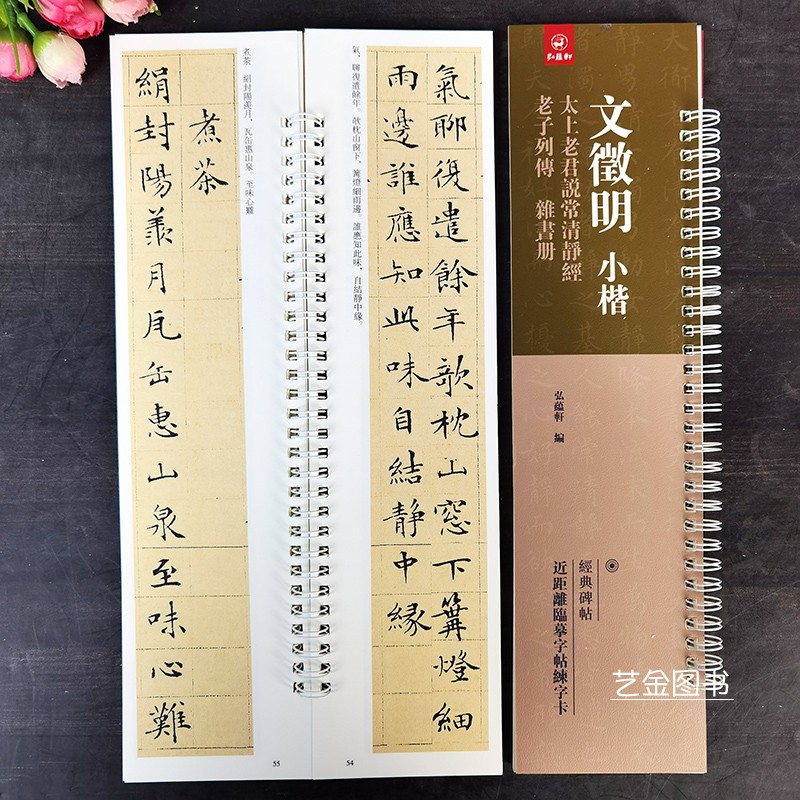 弘蘊軒
文徵明 小楷
太上老君説常清靜經
老子列傳 雜書册
弘蘊軒 編
經典碑帖
近距離臨摹字帖練字卡
艺金图书
氣聊復遣餘年欹枕山窓下篝燈細
雨邊誰應知此味自結靜中緣
氣，聊復遣餘年。欹枕山窗下，篝燈細雨邊。誰應知此味，自結靜中緣。
54
煮茶 絹封陽羨月，瓦缶惠山泉。至味心難
煮茶
絹封陽羨月瓦缶惠山泉至味心難
55